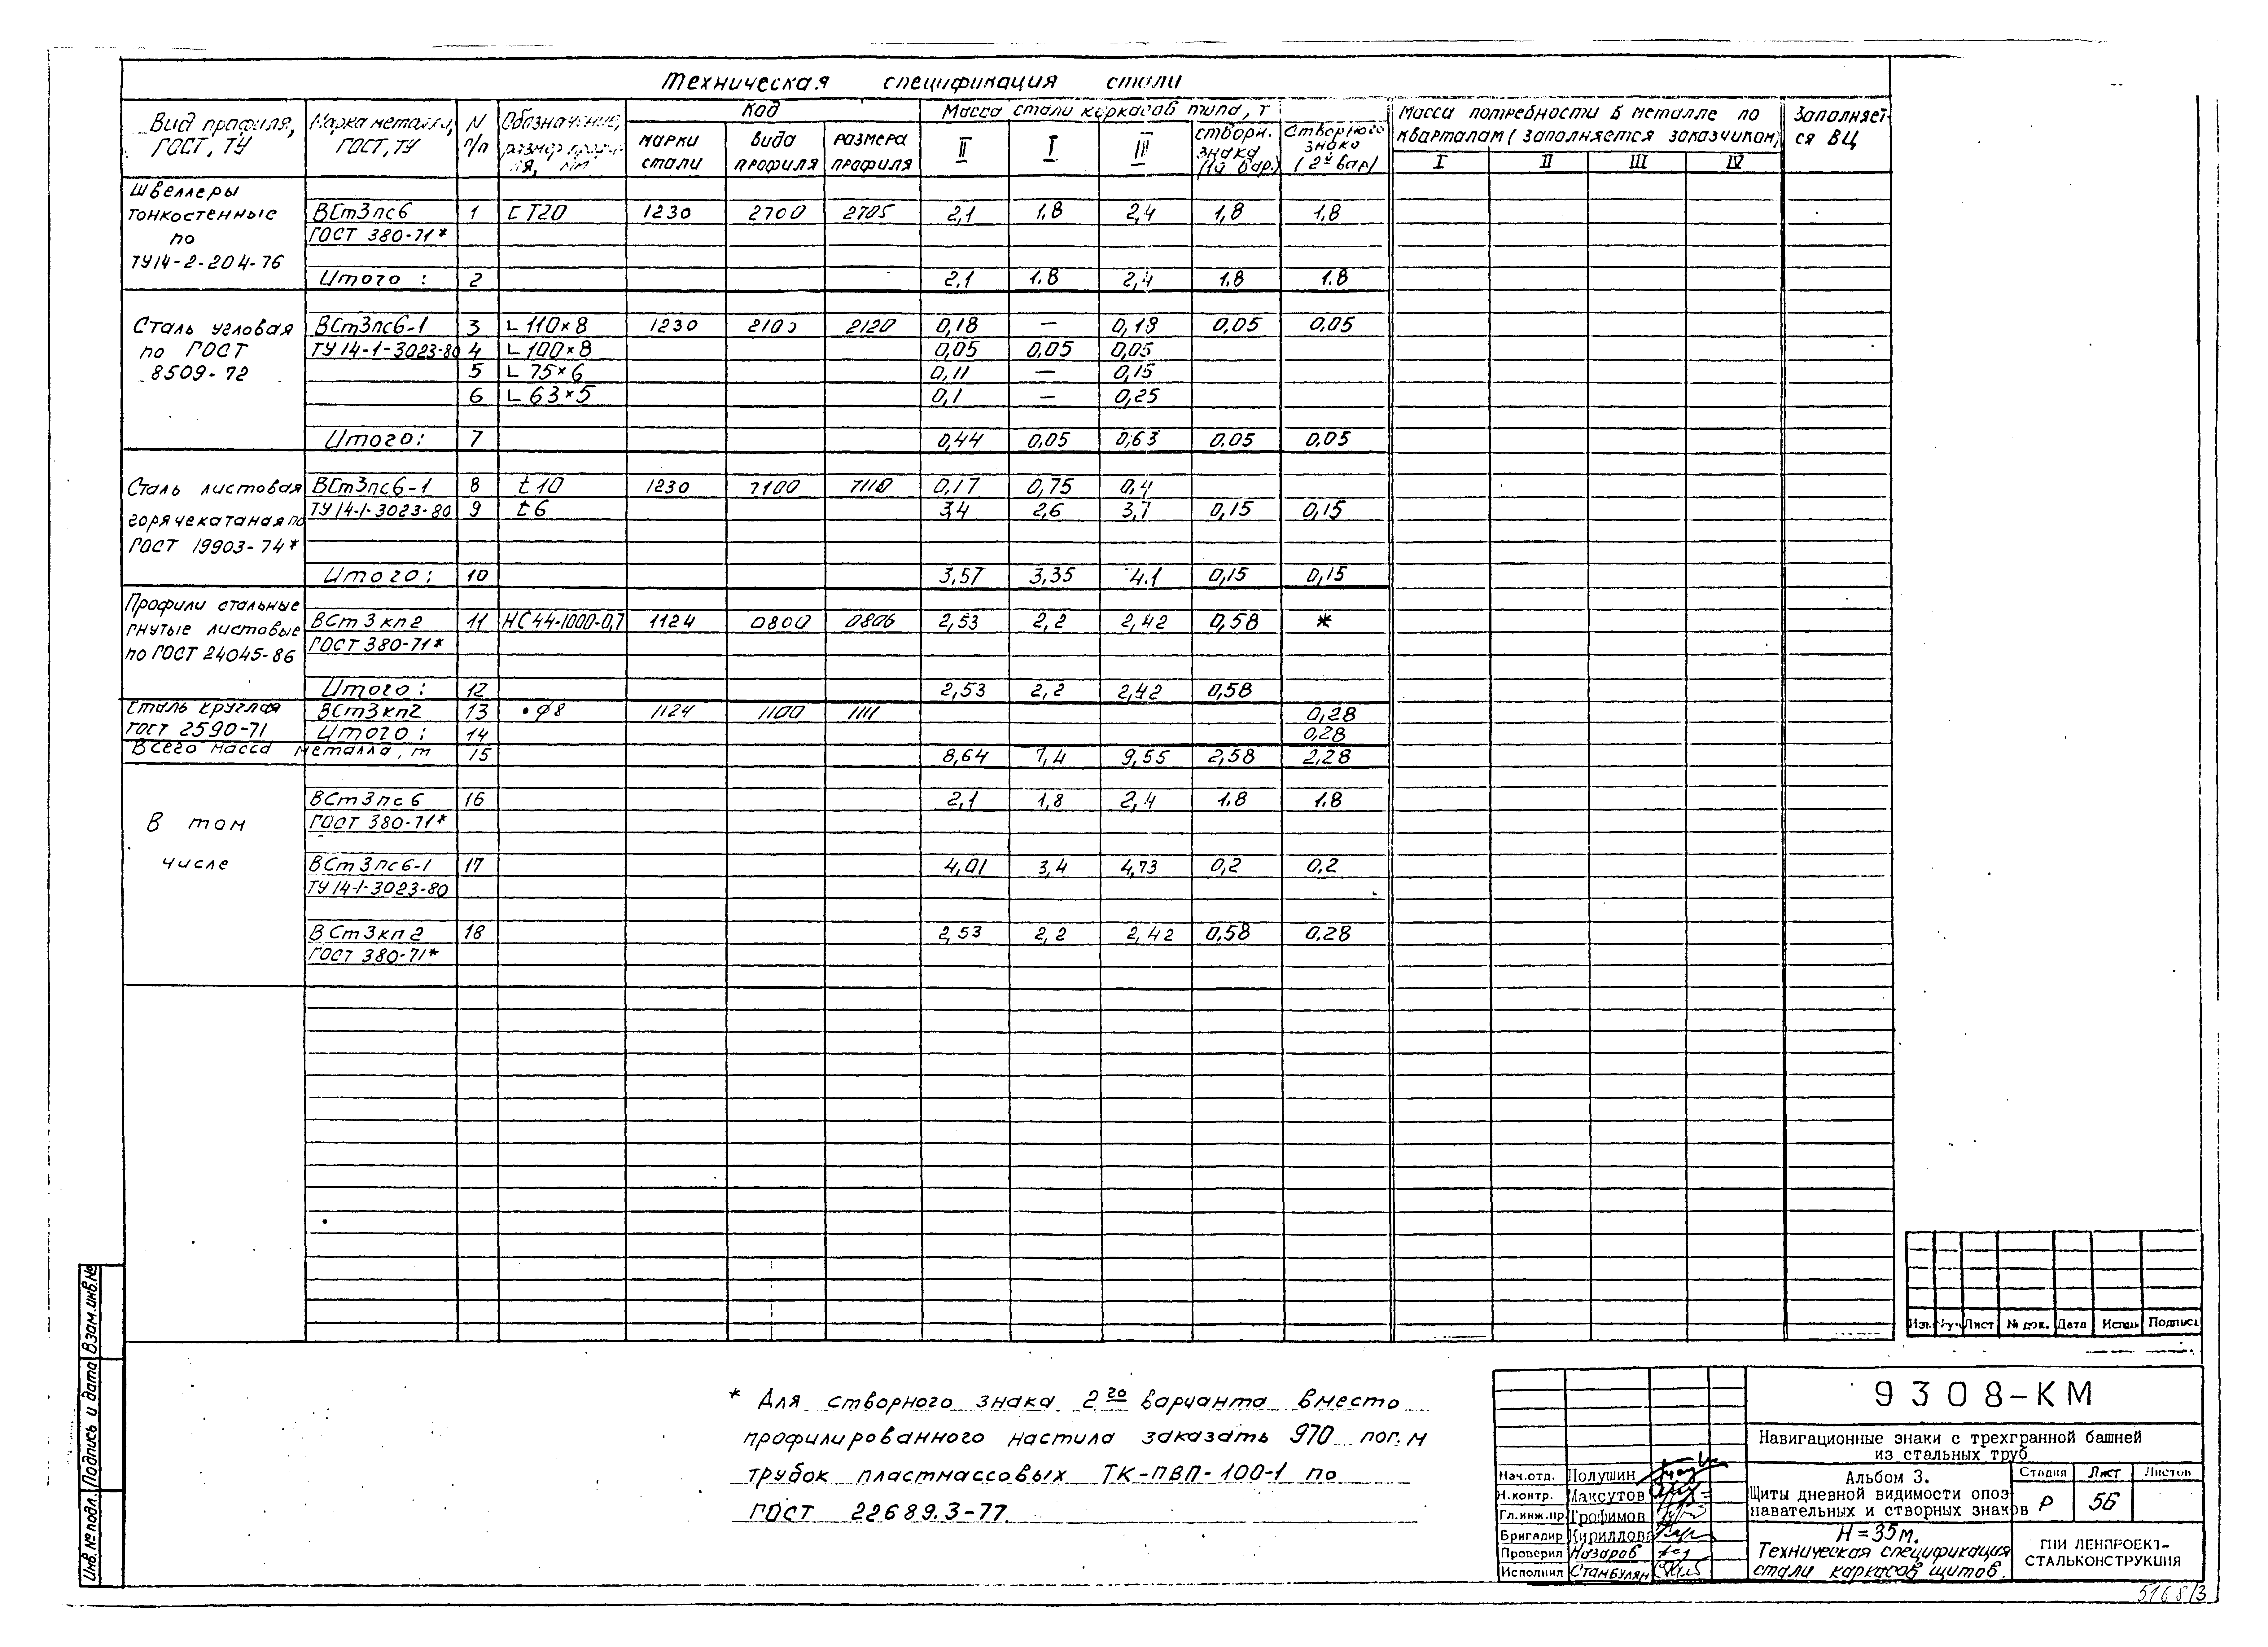 Техническая спецификация стали
Вид профиля, ГОСТ, ТУ
Марка металла, ГОСТ, ТУ
N п/п
Обозначение, размер профиля, мм
Код
марки стали
вида профиля
размера профиля
Масса стали каркасов типа, т
II
I
III
створн. знака (1й вар.)
створного знака (2й вар)
Масса потребности в металле по кварталам (заполняется заказчиком)
I II III IV
Заполняется ВЦ
Швеллеры тонкостенные по ТУ14-2-204-76
ВСт3пс6 1 С Т20 1230 2700 2705 2,1 1,8 2,4 1,8 1,8
ГОСТ 380-71*
Итого: 2 2,1 1.8 2,4 1.8 1.8
Сталь угловая по ГОСТ 8509-72
ВСт3пс6-1 3 L 110×8 1230 2100 2120 0,18 — 0,18 0,05 0,05
ТУ14-1-3023-80 4 L 100×8 0,05 0,05 0,05
5 L 75×6 0,11 — 0,15
6 L 63×5 0,1 — 0,25
Итого: 7 0,44 0,05 0,63 0,05 0,05
Сталь листовая горячекатаная по ГОСТ 19903-74*
ВСт3пс6-1 8 t 10 1230 7100 7110 0,17 0,75 0,4
ТУ14-1-3023-80 9 t6 3,4 2,6 3,7 0,15 0,15
Итого: 10 3,57 3,35 4.1 0,15 0,15
Профили стальные гнутые листовые по ГОСТ 24045-86
ВСт3кп2 11 НС44-1000-0,7 1124 0800 0806 2,53 2,2 2,42 0,58 *
ГОСТ 380-71*
Итого: 12 2,53 2,2 2,42 0,58
Сталь круглая ГОСТ 2590-71
ВСт3кп2 13 •Ø8 1124 1100 1111 0,28
Итого: 14 0,28
Всего масса металла, т 15 8,64 7,4 9,55 2,58 2,28
В том числе
ВСт3пс6 16 2,1 1,8 2,4 1.8 1.8
ГОСТ 380-71*
ВСт3пс6-1 17 4,01 3,4 4,73 0,2 0,2
ТУ14-1-3023-80
ВСт3кп2 18 2,53 2,2 2,42 0,58 0,28
ГОСТ 380-71*
* Для створного знака 2го варианта вместо
профилированного настила заказать 970 пог.м
трубок пластмассовых ТК-ПВП-100-1 по
ГОСТ 22689.3-77.
Изм. Лист № док. Дата Исполн Подпись
9308-КМ
Навигационные знаки с трехгранной башней
из стальных труб
Альбом 3.
Щиты дневной видимости опоз
навательных и створных знаков
Стадия Лист Листов
Р 56
Н=35м.
Техническая спецификация
стали каркасов щитов.
ГПИ ЛЕНПРОЕКТ-
СТАЛЬКОНСТРУКЦИЯ
Нач.отд. Полушин
Н.контр. Максутов
Гл.инж.пр. Трофимов
Бригадир Кириллова
Проверил Назаров
Исполнил Стамбулян
Инв.№ подл. Подпись и дата Взам.инв.№
5168/3